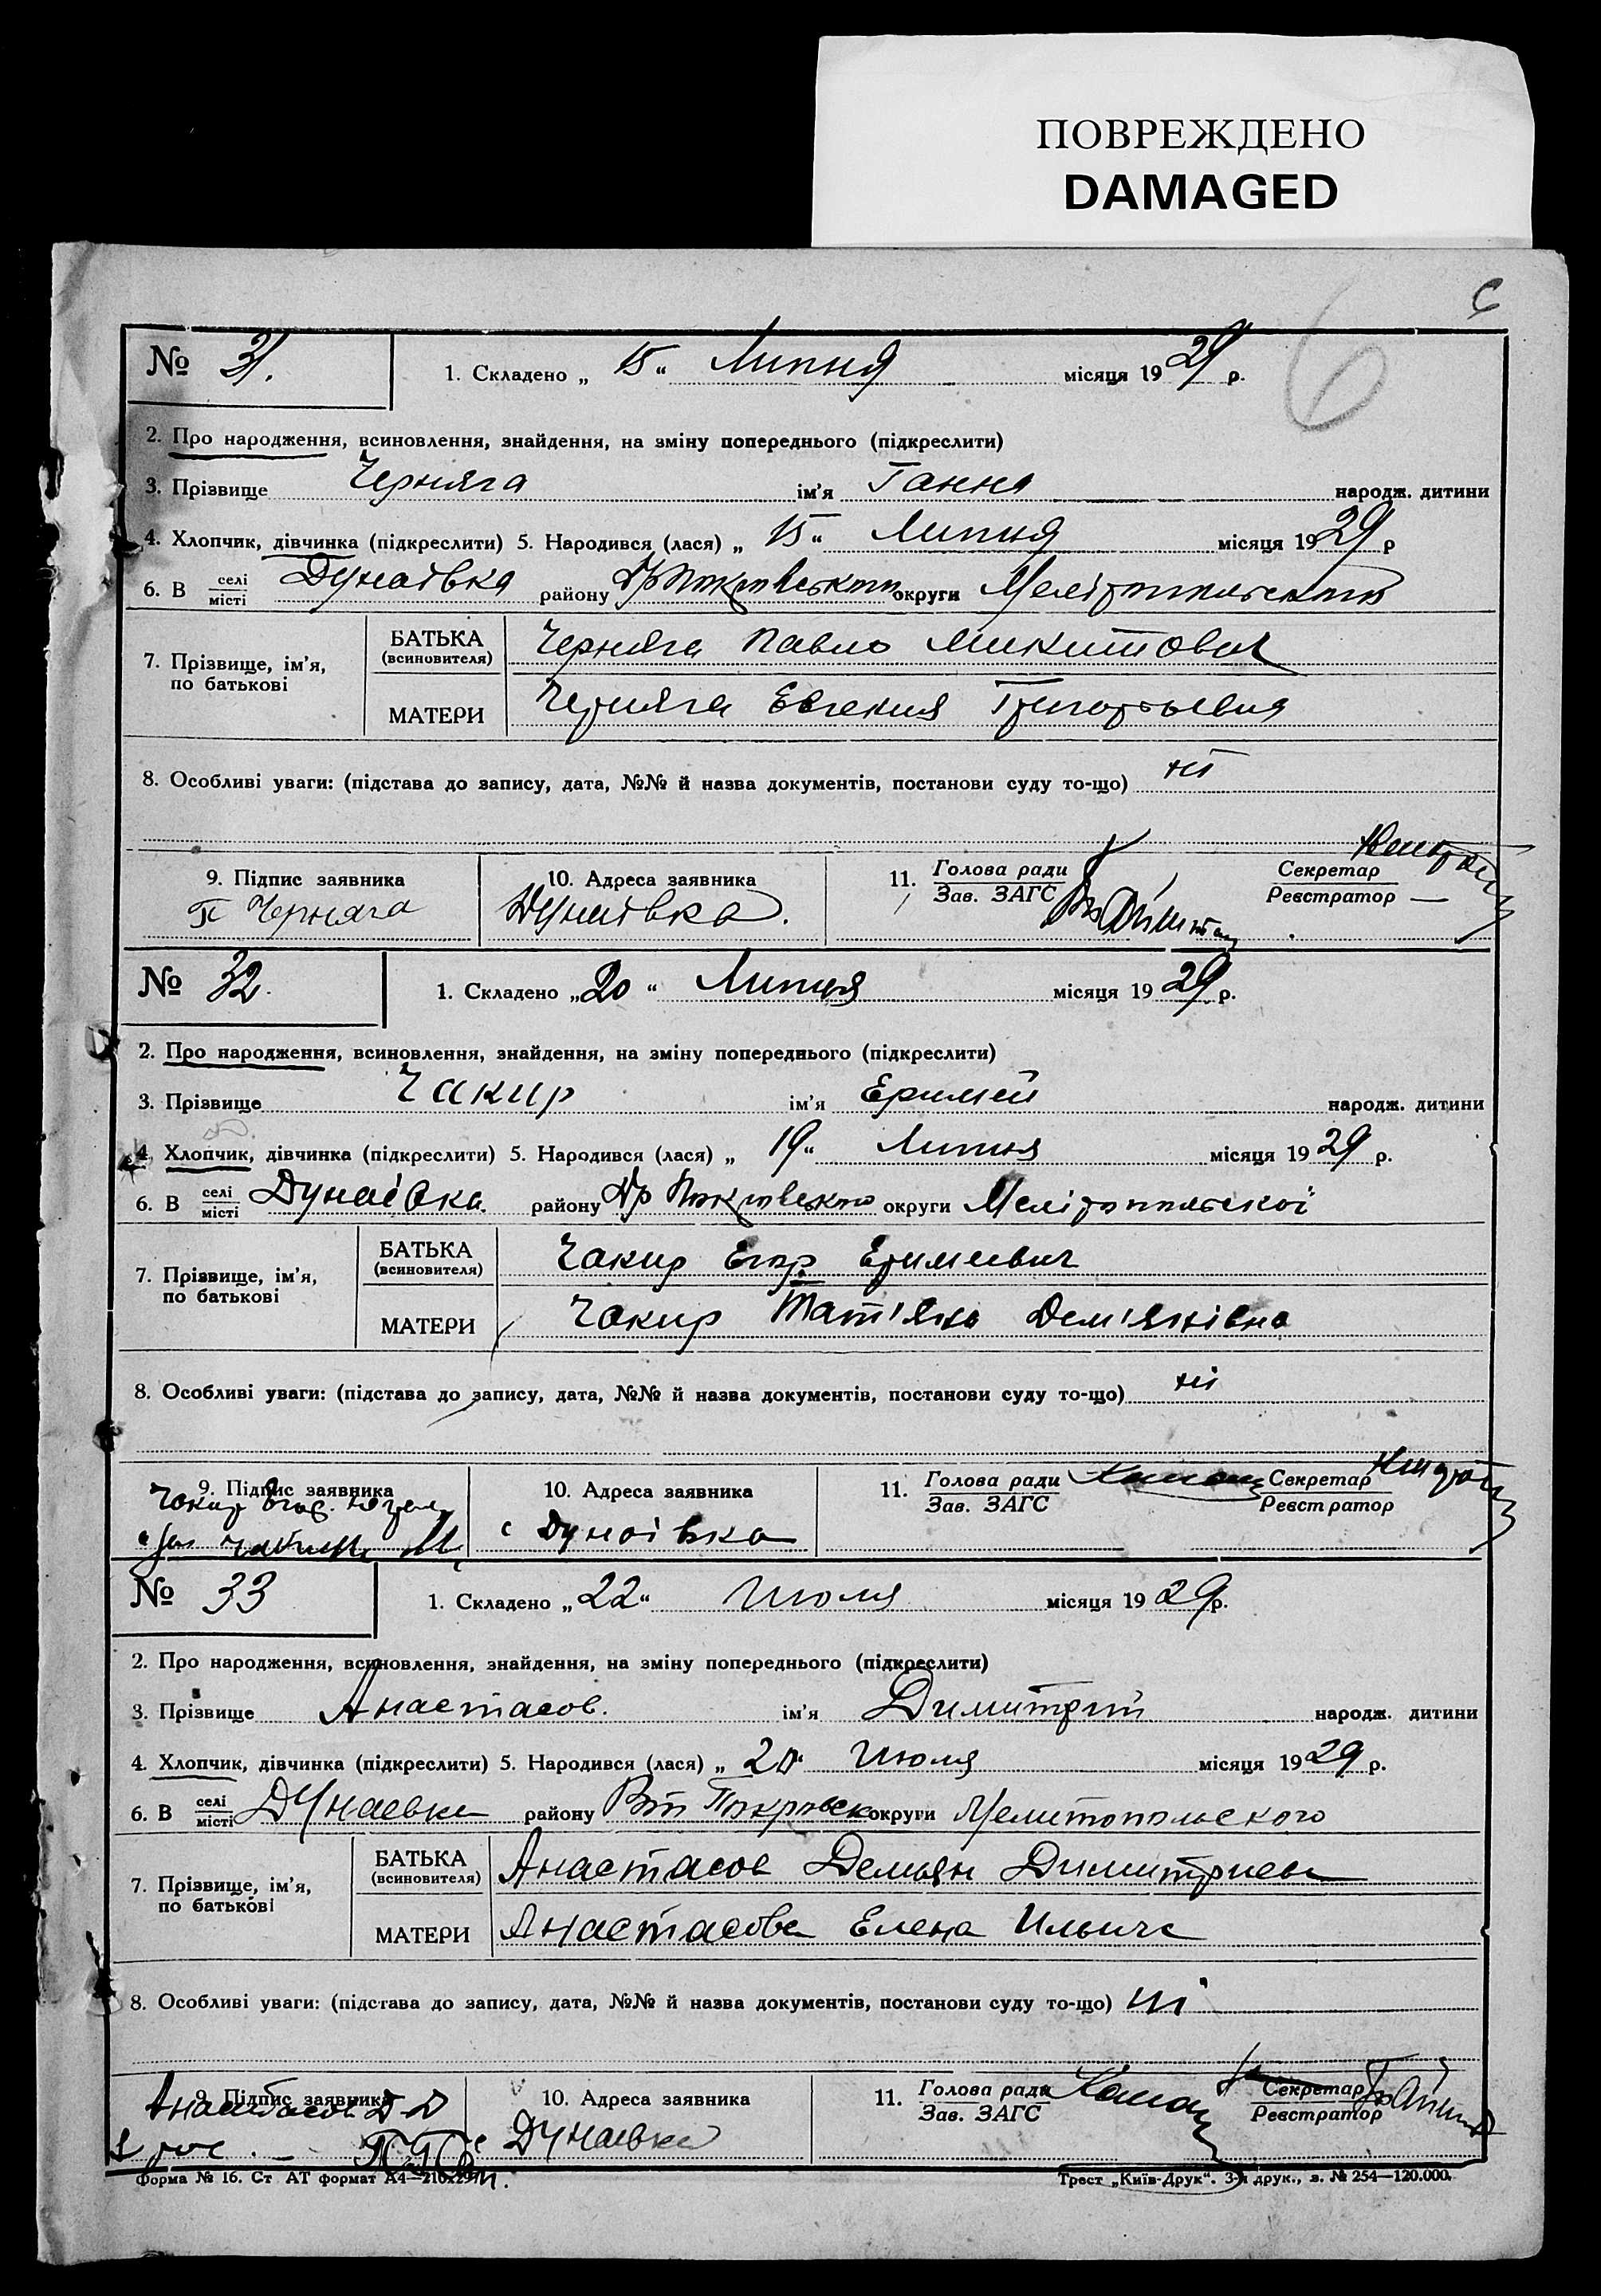 ПОВРЕЖДЕНО
DAMAGED
6
№ 31. 1. Складено „ 15 “ Липня місяця 1929 р.
2. Про народження, всиновлення, знайдення, на зміну попереднього (підкреслити)
3. Прізвище Черняга ім'я Ганна народж. дитини
4. Хлопчик, дівчинка (підкреслити) 5. Народився (лася) „ 15 “ Липня місяця 1929 р
6. В селі місті Дунаівка району округи
7. Прізвище, ім'я, по батькові
БАТЬКА (всиновителя) Черняга Павло Микитович
МАТЕРИ Черняга Евгения Григорьевна
8. Особливі уваги: (підстава до запису, дата, №№ й назва документів, постанови суду то-що) ні
9. Підпис заявника 10. Адреса заявника 11. Голова ради Зав. ЗАГС Секретар Реєстратор
П Черняга Дунаівка.
№ 32. 1. Складено „ 20 “ Липня місяця 1929 р.
2. Про народження, всиновлення, знайдення, на зміну попереднього (підкреслити)
3. Прізвище Чакир ім'я Еримей народж. дитини
4. Хлопчик, дівчинка (підкреслити) 5. Народився (лася) „ 19 “ Липня місяця 1929 р.
6. В селі місті Дунаівка району округи Мелітопольскої
7. Прізвище, ім'я, по батькові
БАТЬКА (всиновителя) Чакир Егор Еримеевич
МАТЕРИ Чакир Тат'яна Дем'янівна
8. Особливі уваги: (підстава до запису, дата, №№ й назва документів, постанови суду то-що) ні
9. Підпис заявника 10. Адреса заявника 11. Голова ради Зав. ЗАГС Секретар Реєстратор
с Дунаівка
№ 33 1. Складено „ 22 “ Июля місяця 1929 р.
2. Про народження, всиновлення, знайдення, на зміну попереднього (підкреслити)
3. Прізвище Анастасов. ім'я Димитрий народж. дитини
4. Хлопчик, дівчинка (підкреслити) 5. Народився (лася) „ 20 “ Июля місяця 1929 р.
6. В селі місті Дунаевка району Покровск округи Мелитопольского
7. Прізвище, ім'я, по батькові
БАТЬКА (всиновителя) Анастасов Демьян Димитриев
МАТЕРИ Анастасова Елена Ильич
8. Особливі уваги: (підстава до запису, дата, №№ й назва документів, постанови суду то-що) ні
9. Підпис заявника 10. Адреса заявника 11. Голова ради Зав. ЗАГС Секретар Реєстратор
Анастасов Д Д
Дунаевка
Форма № 16. Ст АТ формат А4—210х297
Трест „Київ-Друк“. 3-я друк., з. № 254—120.000.